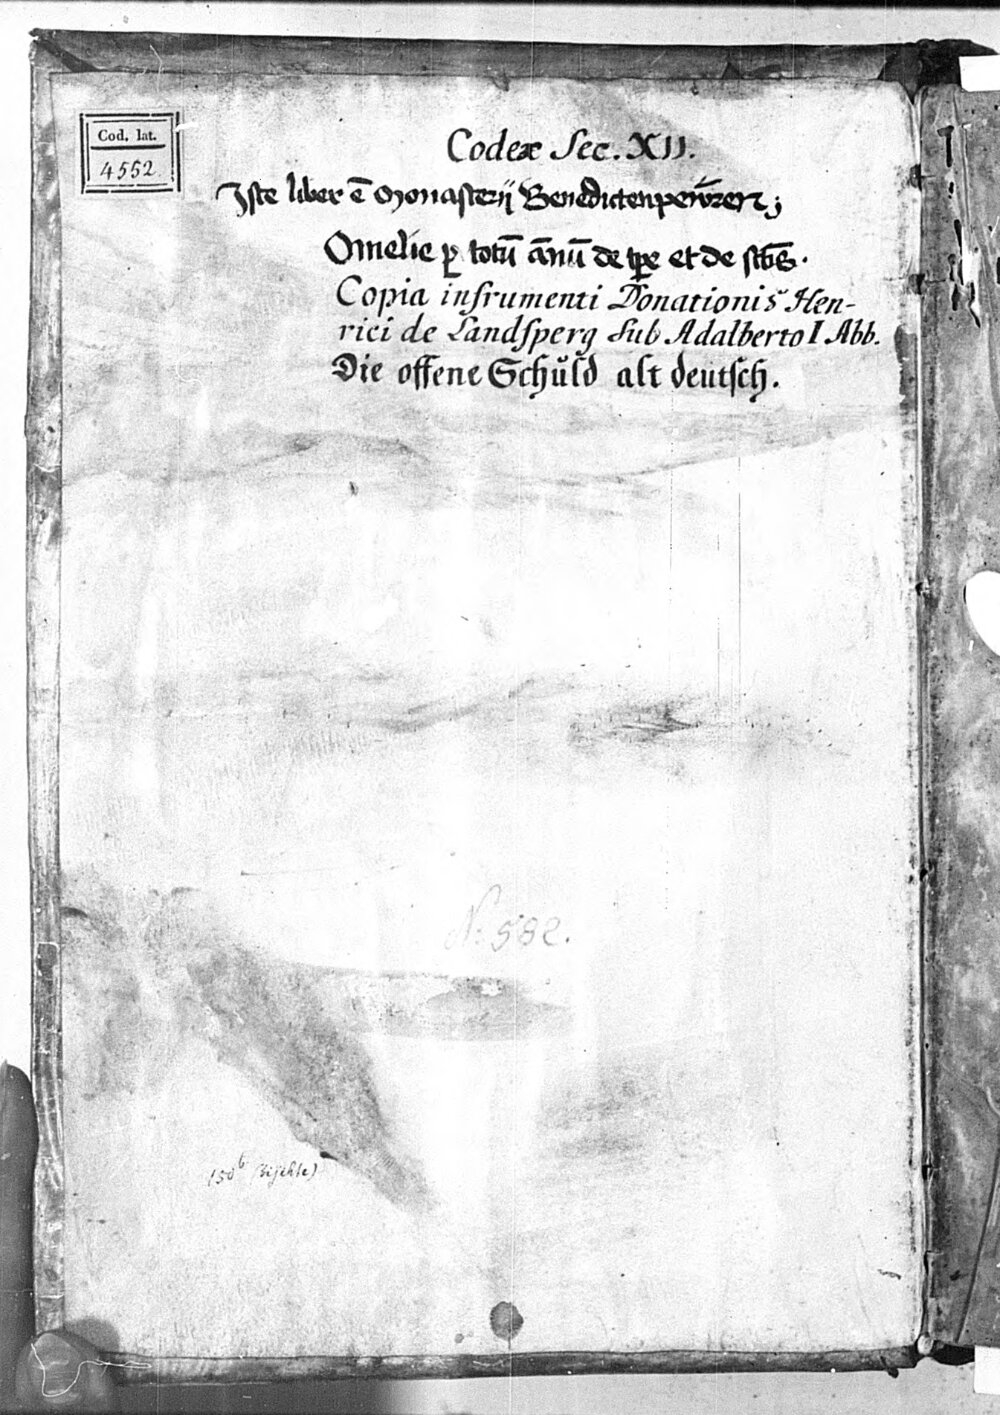 Cod. lat.
4552.
Codex Sec. XII.
Iste liber ē Monasterij Benedictenpewrēn;
Omelie ꝑ totū ānū de tꝑe et de sctīs.
Copia insrumenti Donationis Hen-
rici de Landsperg sub Adalberto I Abb.
Die offene Schŭld alt deutsch.
N: 582.
150ᵇ (Beichte)